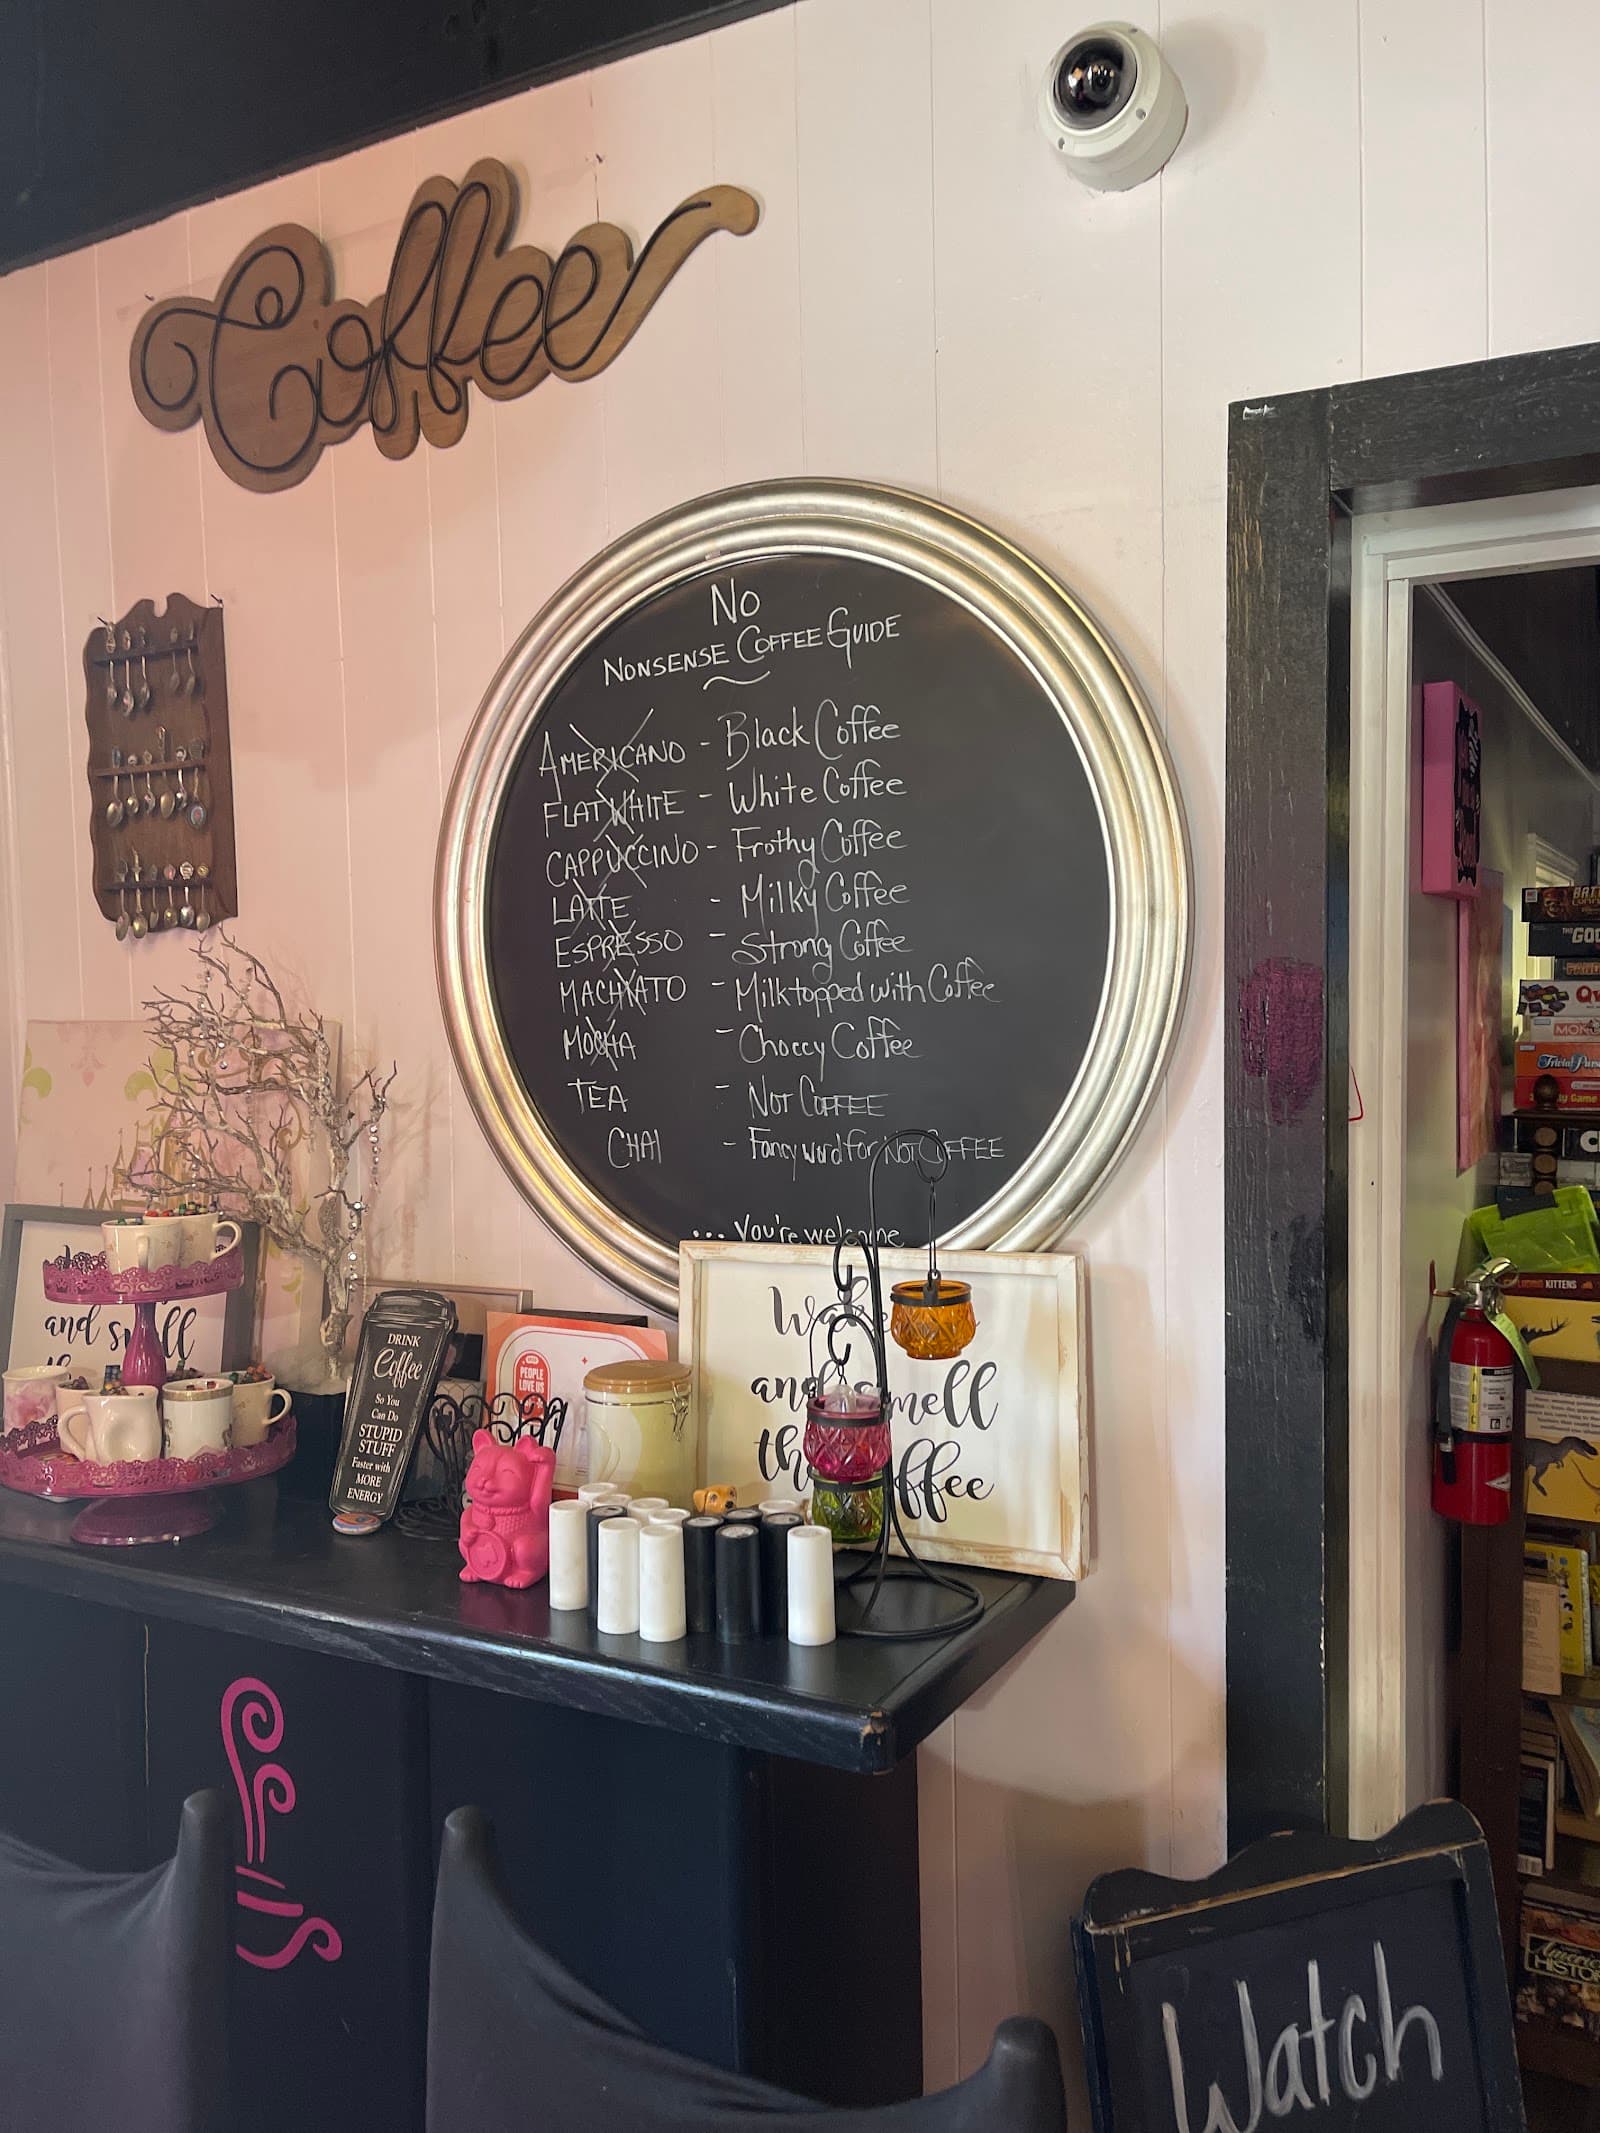 Coffee
No
NONSENSE COFFEE GUIDE
AMERICANO - Black Coffee
FLAT WHITE - White Coffee
CAPPUCCINO - Frothy Coffee
LATTE - Milky Coffee
ESPRESSO - Strong Coffee
MACHIATO - Milk topped with Coffee
MOCHA - Choccy Coffee
TEA - NOT COFFEE
CHAI - Fancy word for NOT COFFEE
... you're welcome
and smell
DRINK
Coffee
So You
Can Do
STUPID
STUFF
Faster with
MORE
ENERGY
PEOPLE
LOVE US
Wake
and smell
the coffee
Trivial Purs
KITTENS
American
HISTO
Watch